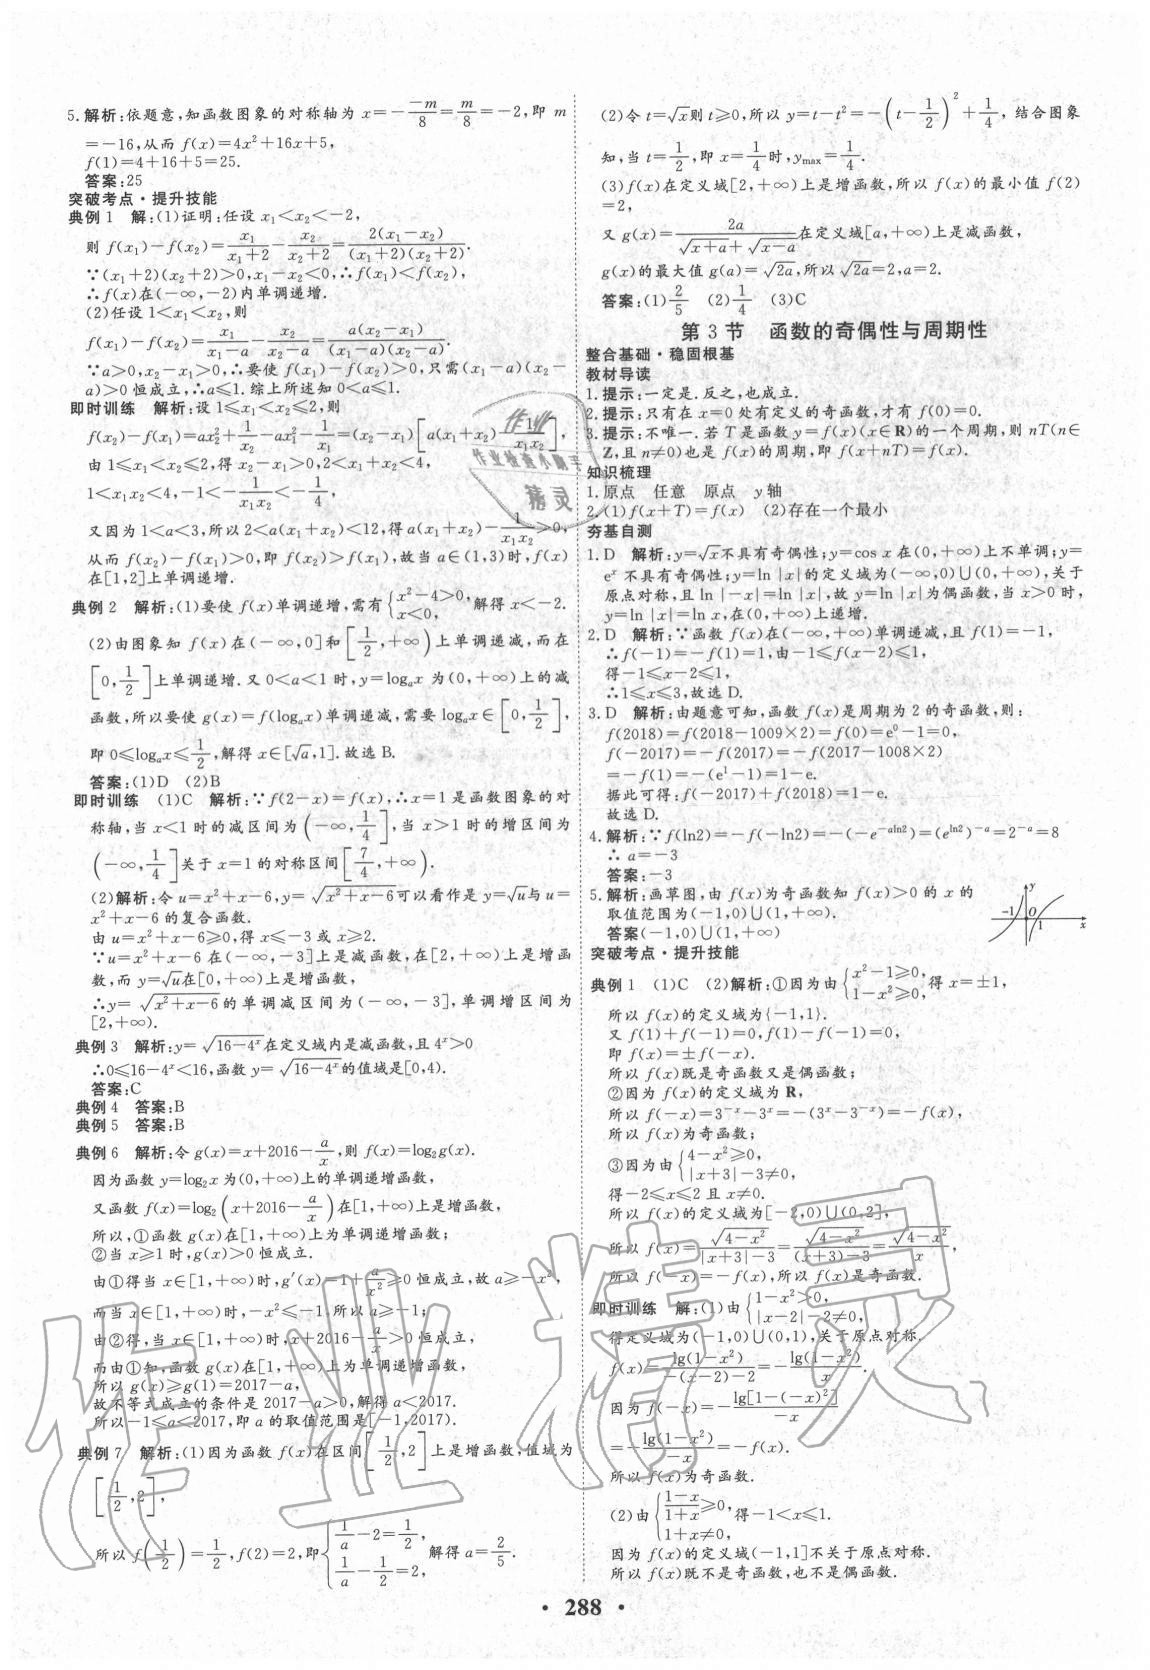 5. 解析:依题意,知函数图象的对称轴为 x=-\frac{-m}{8}=\frac{m}{8}=-2,即 m
=-16,从而 f(x)=4x²+16x+5,
f(1)=4+16+5=25.
答案:25
突破考点·提升技能
典例 1 解:(1)证明:任设 x₁<x₂<-2,
则 f(x₁)-f(x₂)=\frac{x₁}{x₁+2}-\frac{x₂}{x₂+2}=\frac{2(x₁-x₂)}{(x₁+2)(x₂+2)}.
∵(x₁+2)(x₂+2)>0,x₁-x₂<0,∴f(x₁)<f(x₂),
∴f(x)在(-∞,-2)内单调递增.
(2)任设 1<x₁<x₂,则
f(x₁)-f(x₂)=\frac{x₁}{x₁-a}-\frac{x₂}{x₂-a}=\frac{a(x₂-x₁)}{(x₁-a)(x₂-a)}.
∵a>0,x₂-x₁>0,∴要使 f(x₁)-f(x₂)>0,只需(x₁-a)(x₂-
a)>0 恒成立,∴a≤1. 综上所述知 0<a≤1.
即时训练 解析:设 1≤x₁<x₂≤2,则
f(x₂)-f(x₁)=ax₂²+\frac{1}{x₂}-ax₁²-\frac{1}{x₁}=(x₂-x₁)[a(x₁+x₂)-\frac{1}{x₁x₂}],
由 1≤x₁<x₂≤2,得 x₂-x₁>0,2<x₁+x₂<4,
1<x₁x₂<4,-1<-\frac{1}{x₁x₂}<-\frac{1}{4},
又因为 1<a<3,所以 2<a(x₁+x₂)<12,得 a(x₁+x₂)-\frac{1}{x₁x₂}>0,
从而 f(x₂)-f(x₁)>0,即 f(x₂)>f(x₁),故当 a∈(1,3)时,f(x)
在[1,2]上单调递增.
典例 2 解析:(1)要使 f(x)单调递增,需有{x²-4>0, x<0, 解得 x<-2.
(2)由图象知 f(x)在(-∞,0]和[\frac{1}{2},+∞)上单调递减,而在
[0,\frac{1}{2}]上单调递增. 又 0<a<1 时,y=logₐx 为(0,+∞)上的减
函数,所以要使 g(x)=f(logₐx)单调递减,需要 logₐx∈[0,\frac{1}{2}],
即 0≤logₐx≤\frac{1}{2},解得 x∈[√a,1]. 故选 B.
答案:(1)D (2)B
即时训练 (1)C 解析:∵f(2-x)=f(x),∴x=1 是函数图象的对
称轴,当 x<1 时的减区间为(-∞,\frac{1}{4}],当 x>1 时的增区间为
(-∞,\frac{1}{4}]关于 x=1 的对称区间[\frac{7}{4},+∞).
(2)解析:令 u=x²+x-6,y=√(x²+x-6)可以看作是 y=√u与 u=
x²+x-6 的复合函数.
由 u=x²+x-6≥0,得 x≤-3 或 x≥2.
∵u=x²+x-6 在(-∞,-3]上是减函数,在[2,+∞)上是增函
数,而 y=√u在[0,+∞)上是增函数.
∴y=√(x²+x-6)的单调减区间为(-∞,-3],单调增区间为
[2,+∞).
典例 3 解析:y=√(16-4ˣ)在定义域内是减函数,且 4ˣ>0
∴0≤16-4ˣ<16,函数 y=√(16-4ˣ)的值域是[0,4).
答案:C
典例 4 答案:B
典例 5 答案:B
典例 6 解析:令 g(x)=x+2016-\frac{a}{x},则 f(x)=log₂g(x).
因为函数 y=log₂x 为(0,+∞)上的单调递增函数,
又函数 f(x)=log₂(x+2016-\frac{a}{x})在[1,+∞)上是增函数,
所以,①函数 g(x)在[1,+∞)上为单调递增函数;
②当 x≥1 时,g(x)>0 恒成立.
由①得当 x∈[1,+∞)时,g′(x)=1+\frac{a}{x²}≥0 恒成立,故 a≥-x²,
而当 x∈[1,+∞)时,-x²≤-1,所以 a≥-1;
由②得,当 x∈[1,+∞)时,x+2016-\frac{a}{x}>0 恒成立,
而由①知,函数 g(x)在[1,+∞)上为单调递增函数,
所以 g(x)≥g(1)=2017-a,
故不等式成立的条件是 2017-a>0,解得 a<2017.
所以-1≤a<2017,即 a 的取值范围是[-1,2017).
典例 7 解析:(1)因为函数 f(x)在区间[\frac{1}{2},2]上是增函数,值域为
[\frac{1}{2},2],
所以 f(\frac{1}{2})=\frac{1}{2},f(2)=2,即{\frac{1}{a}-2=\frac{1}{2}, \frac{1}{a}-\frac{1}{2}=2, 解得 a=\frac{2}{5}.
(2)令 t=√x则 t≥0,所以 y=t-t²=-(t-\frac{1}{2})²+\frac{1}{4},结合图象
知,当 t=\frac{1}{2},即 x=\frac{1}{4}时,y_max=\frac{1}{4}.
(3)f(x)在定义域[2,+∞)上是增函数,所以 f(x)的最小值 f(2)
=2,
又 g(x)=\frac{2a}{√(x+a)+√(x-a)}在定义域[a,+∞)上是减函数,
g(x)的最大值 g(a)=√(2a),所以√(2a)=2,a=2.
答案:(1)\frac{2}{5} (2)\frac{1}{4} (3)C
第 3 节 函数的奇偶性与周期性
整合基础·稳固根基
教材导读
1. 提示:一定是. 反之,也成立.
2. 提示:只有在 x=0 处有定义的奇函数,才有 f(0)=0.
3. 提示:不唯一. 若 T 是函数 y=f(x)(x∈R)的一个周期,则 nT(n∈
Z,且 n≠0)也是 f(x)的周期,即 f(x+nT)=f(x).
知识梳理
1. 原点 任意 原点 y 轴
2. (1)f(x+T)=f(x) (2)存在一个最小
夯基自测
1. D 解析:y=√x不具有奇偶性;y=cos x 在(0,+∞)上不单调;y=
eˣ 不具有奇偶性;y=ln |x|的定义域为(-∞,0)∪(0,+∞),关于
原点对称,且 ln |-x|=ln |x|,故 y=ln |x|为偶函数,当 x>0 时,
y=ln |x|=ln x,在(0,+∞)上递增.
2. D 解析:∵函数 f(x)在(-∞,+∞)单调递减,且 f(1)=-1,
∴f(-1)=-f(1)=1,由-1≤f(x-2)≤1,
得-1≤x-2≤1,
∴1≤x≤3,故选 D.
3. D 解析:由题意可知,函数 f(x)是周期为 2 的奇函数,则:
f(2018)=f(2018-1009×2)=f(0)=e⁰-1=0,
f(-2017)=-f(2017)=-f(2017-1008×2)
=-f(1)=-(e¹-1)=1-e.
据此可得:f(-2017)+f(2018)=1-e.
故选 D.
4. 解析:∵f(ln2)=-f(-ln2)=-(-e^{-aln2})=(e^{ln2})^{-a}=2^{-a}=8
∴ a=-3
答案:-3
5. 解析:画草图,由 f(x)为奇函数知 f(x)>0 的 x 的
取值范围为(-1,0)∪(1,+∞).
答案(-1,0)∪(1,+∞)
y
-1 0 1 x
突破考点·提升技能
典例 1 (1)C (2)解析:①因为由{x²-1≥0, 1-x²≥0, 得 x=±1,
所以 f(x)的定义域为{-1,1}.
又 f(1)+f(-1)=0,f(1)-f(-1)=0,
即 f(x)=±f(-x).
所以 f(x)既是奇函数又是偶函数;
②因为 f(x)的定义域为 R,
所以 f(-x)=3⁻ˣ-3ˣ=-(3ˣ-3⁻ˣ)=-f(x),
所以 f(x)为奇函数;
③因为由{4-x²≥0, |x+3|-3≠0,
得-2≤x≤2 且 x≠0.
所以 f(x)的定义域为[-2,0)∪(0,2],
所以 f(x)=\frac{√(4-x²)}{|x+3|-3}=\frac{√(4-x²)}{(x+3)-3}=\frac{√(4-x²)}{x},
所以 f(-x)=-f(x),所以 f(x)是奇函数.
即时训练 解:(1)由{1-x²>0, |x-2|-2≠0,
得定义域为(-1,0)∪(0,1),关于原点对称.
f(x)=\frac{lg(1-x²)}{-(x-2)-2}=-\frac{lg(1-x²)}{x}.
因为 f(-x)=-\frac{lg[1-(-x)²]}{-x}
=-\frac{lg(1-x²)}{-x}=-f(x).
所以 f(x)为奇函数.
(2)由{\frac{1-x}{1+x}≥0, 1+x≠0, 得-1<x≤1.
因为 f(x)的定义域(-1,1]不关于原点对称.
所以 f(x)既不是奇函数,也不是偶函数.
· 288 ·
作业
作业检查小助手
精灵
作业精灵